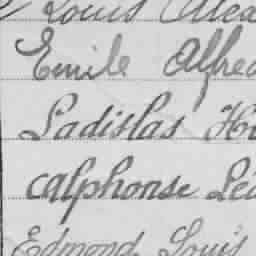 Louis
Emile Alfred
Ladislas
Calphonse
Edmond Louis